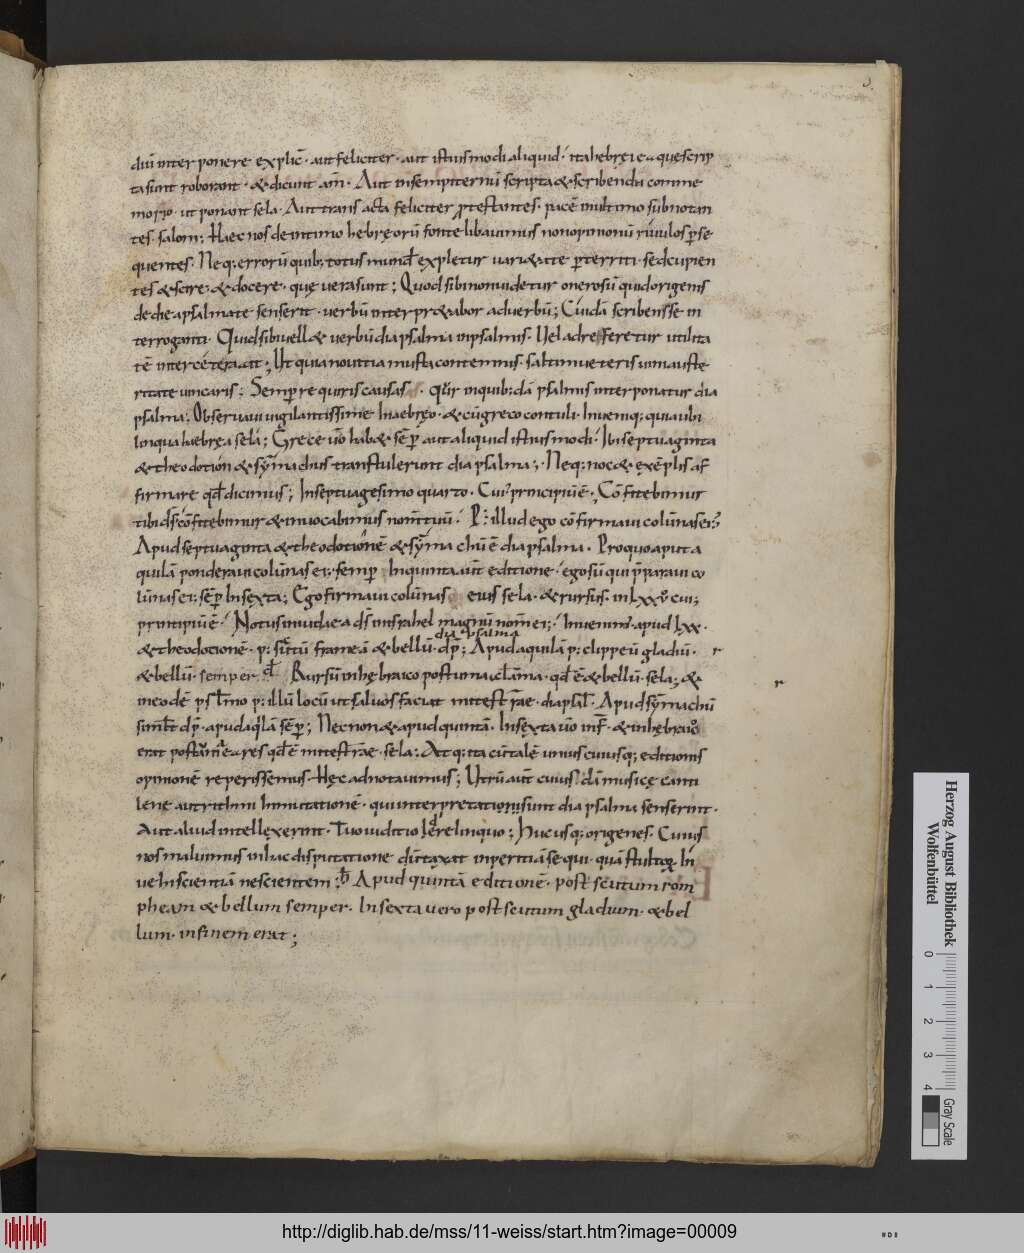 3.
diũ inter ponere explic̄· aut feliciter· aut istius modi aliquid· ita hebrei ea que scrip
ta sunt roborant· & dicunt am̄· Aut in sempiternũ scripta & scribenda comme
morio· ut ponant sela· Aut trans acta feliciter p̱testantes· pacẽ in ultimo subnotan
tes· salom; Haec nos de intimo hebreorũ fonte libavimus non opinionũ rivulos p̱se
quentes· Neq; errorũ quib; totus mund' expletur vari&ate p̱territi· sed cupien
tes & scire· & docere· quę vera sunt; Quod si tibi non videtur onerosũ quid origenis
de diapsalmate senserit· verbũ interpr&abor ad verbũ;
terroganti· Quid sibi vell& verbũ diapsalma in psalmis· Vel ad re
tẽ
Ut quia novitia musta contemnis· saltim veteris vini auste
ritate
Semper requiris causas· qur̄ inquib;dã psalmis interponatur dia
psalma· Observavi vigilantissime in aebręo· & cũ greco contuli· Inveniq; quia ubi
lingua haebręa sela; Grece ũo hab& sẽp̱ aut aliquid istius modi· Ibi septuaginta
& theodotion & sym̄achus transtulerunt diapsalma; Neq; noc& exẽplis af
firmare qđ dicimus; In septuagesimo quarto· Cui' principiũ ẽ· Cõfitebimur
tibi dš cõfitebimur & invocabimus nom̄ tuũ· P̱: illud ego cõfirmavi colũnas ei';
Apud septuaginta & theodotionẽ & sym̄achũ ẽ diapsalma· Pro quo aput a
quilã ponderavi colũnas ei'· semp̱· In quinta aut̃ editione· ego sũ qui p̄paravi co
lũnas ei'· sẽp̱ In sexta; Ego firmavi colũnas eius sela· & rursus· in lxxv̊ cui;
principiũ ẽ· Notus in iudaea dš in israhel magnũ nom̄ ei;· Invenim' apud lxx·
dia psalma
& theodotione· p: scutũ frameã & bellũ· dp̄; Apud aquilã p: clippeũ gladiũ· r
& bellũ· semper Rursũ in hebraico qđ ẽ & bellũ· sela; &
in eodẽ psalmo p: illũ locũ ut salvos faciat Apud sym̄achũ
dp̄· apud aq̄lã sẽp̱; Necnon & apud quintã· In sexta ũo & in hebraeo
erat post qđ ẽ sela; Atq; ita cũ talẽ unius cuiusq; editionis
opinionẽ reperissemus· Hęc adnotavimus; Utrũ aut̃ cuius'dã musicę canti
lene aut rithmi inmutationẽ· qui interpretati sunt diapsalma senserint·
Aut aliud intellexerint· Tuo iuditio derelinquo; Huc usq; origenes· Cuius
nos maluimus in hac disputatione dũtaxat inperitiã sequi· quã stultã In
ve hi scientiã nescientem; ħ Apud quintã editionẽ· post scutum rom
pheam & bellum semper· In sexta vero post scutum gladium· & bel
lum· in finem erat;
r
Herzog August Bibliothek
Wolfenbüttel
0 1 2 3 4
Gray Scale
http://diglib.hab.de/mss/11-weiss/start.htm?image=00009